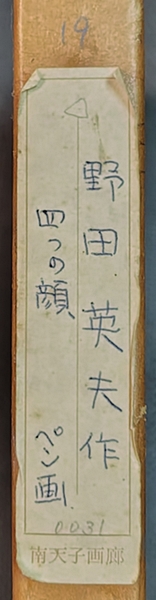 19
野田英夫作
四つの顔 ペン画
0031
南天子画廊